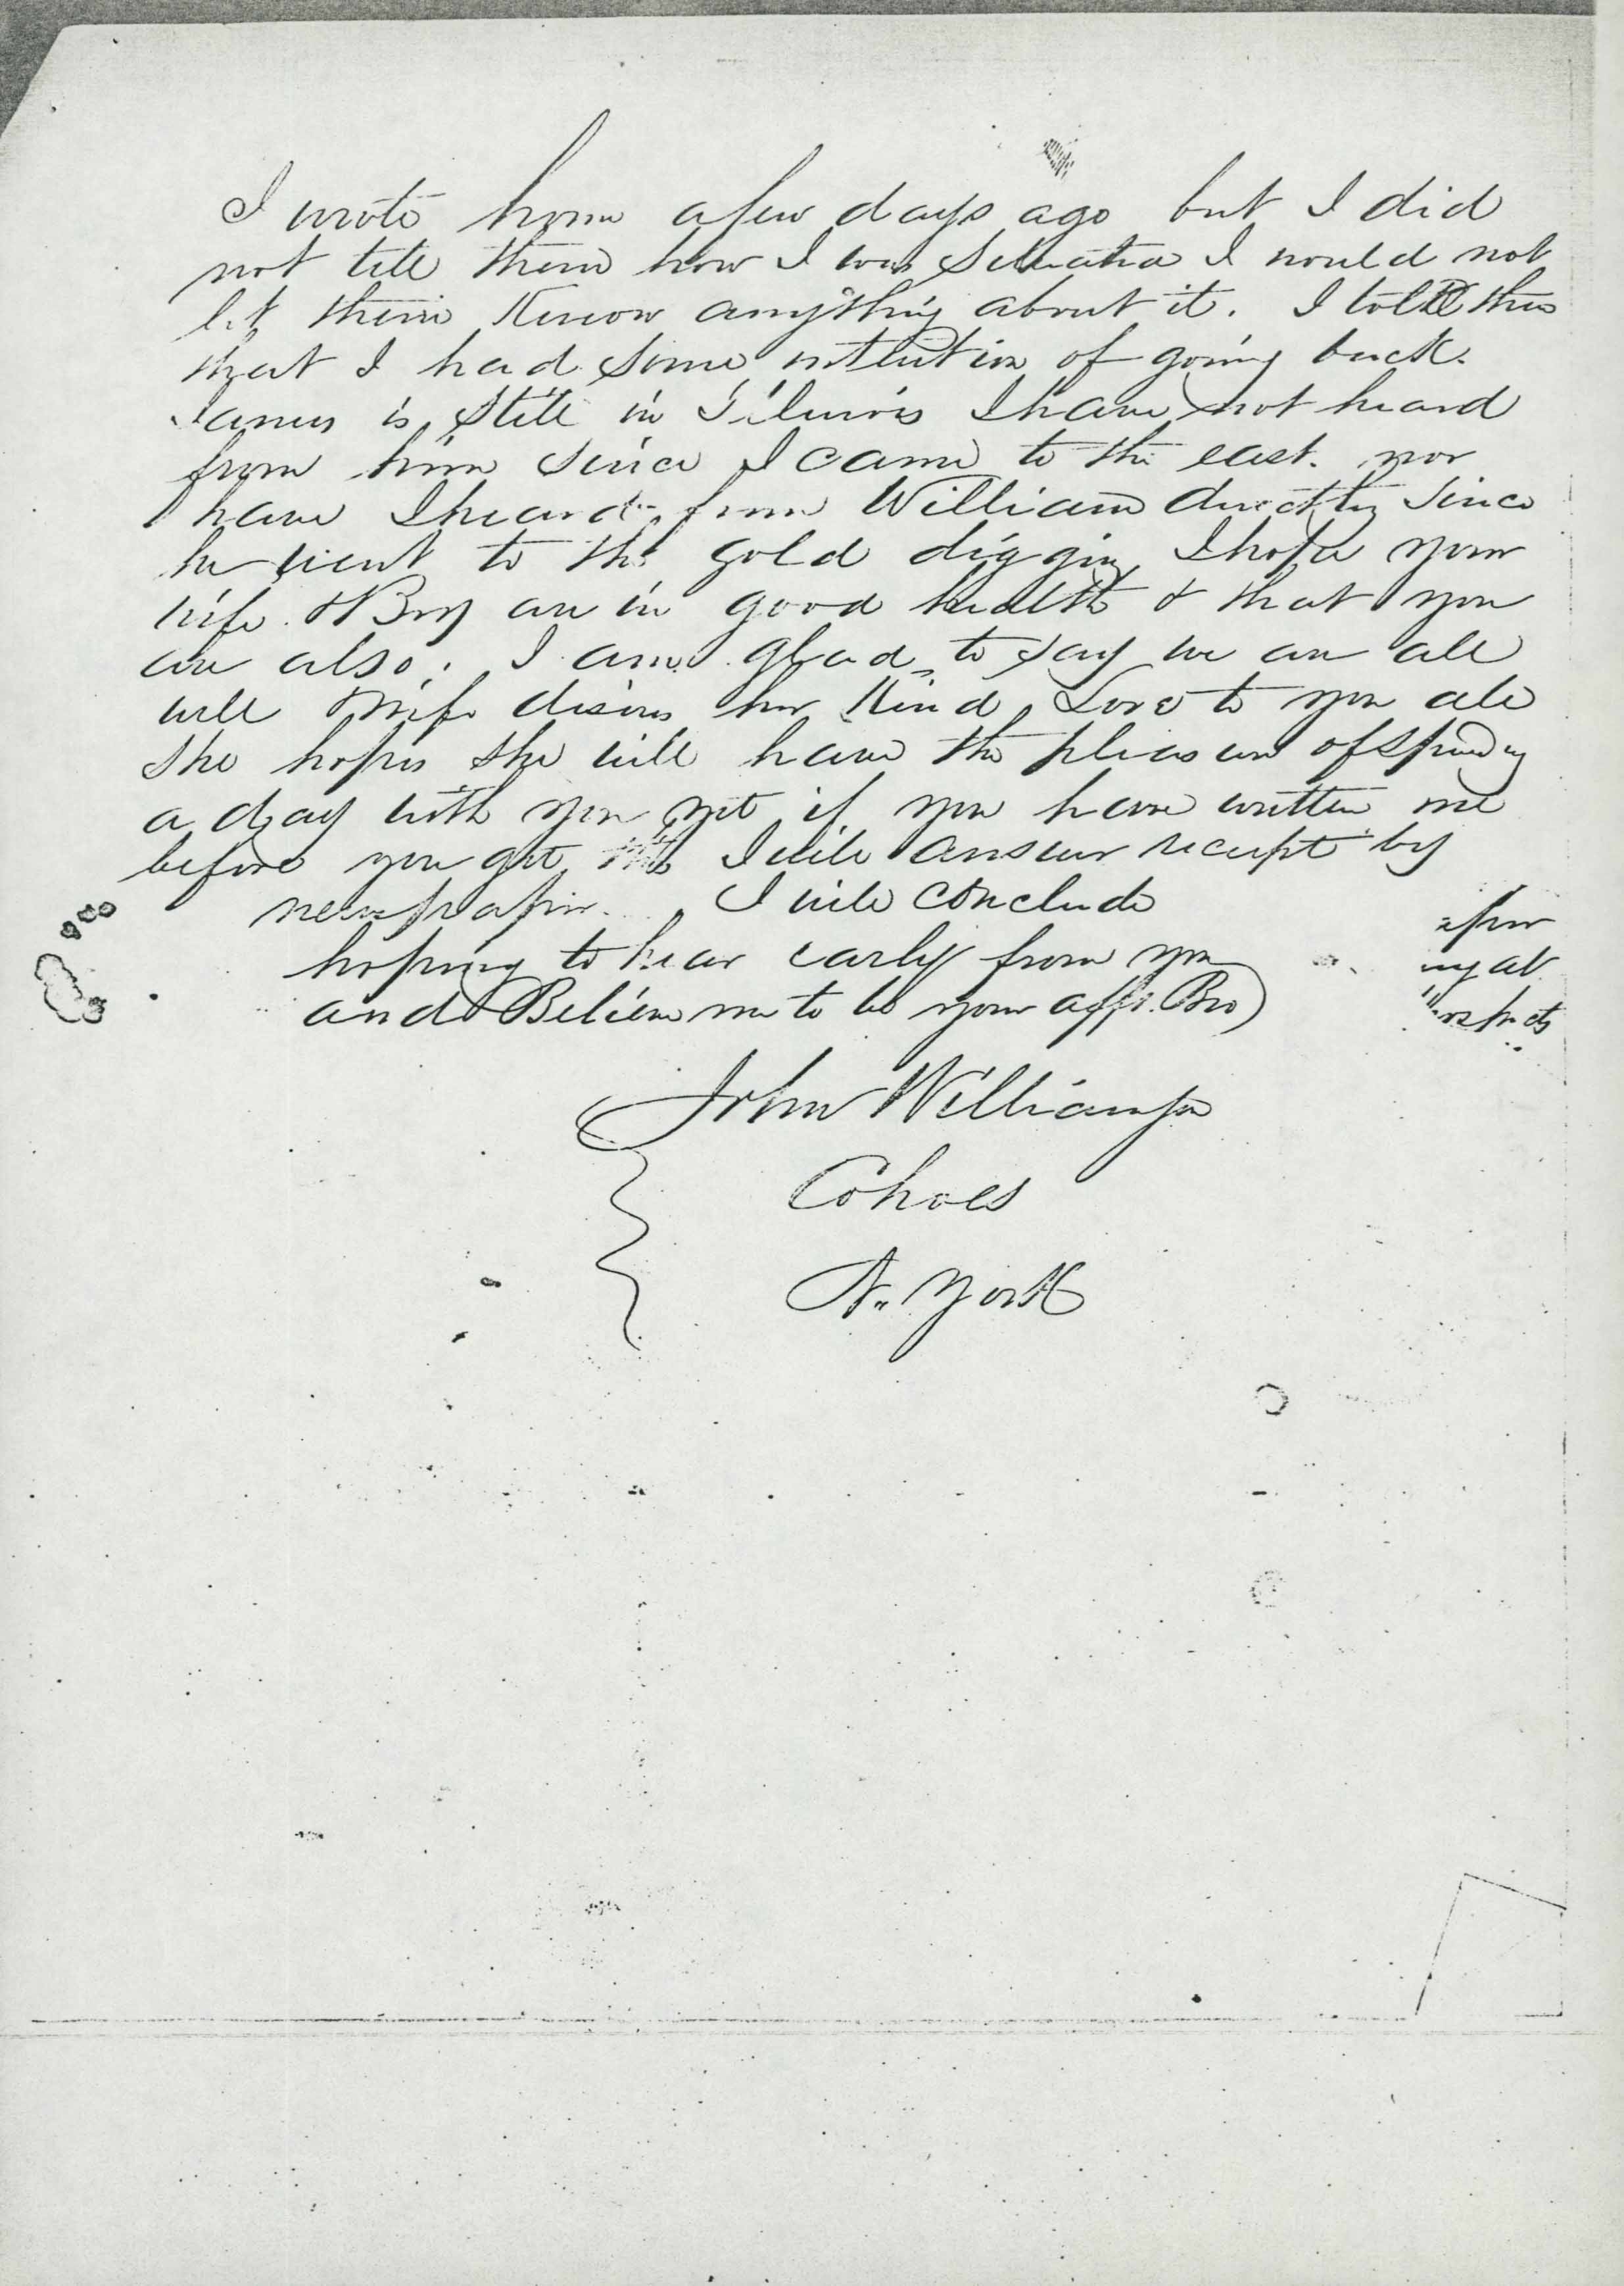 I wrote home a few days ago but I did
not tell them how I was Situated I would not
let them Know anything about it. I told them
that I had some intention of going back.
James is still in Illinois I have not heard
from him since I came to the east. nor
have I heard from William directly since
he went to the gold digging I hope your
wife & Boy are in good health & that you
are also. I am glad to say we are all
well Wife desires her Kind Love to you all
She hopes she will have the pleasure of spending
a day with you yet if you have written me
before you get this I will answer receipt by
newspaper. I will conclude
hoping to hear early from you
and Believe me to be your afft. Bro
John Williamson
Cohoes
N. York